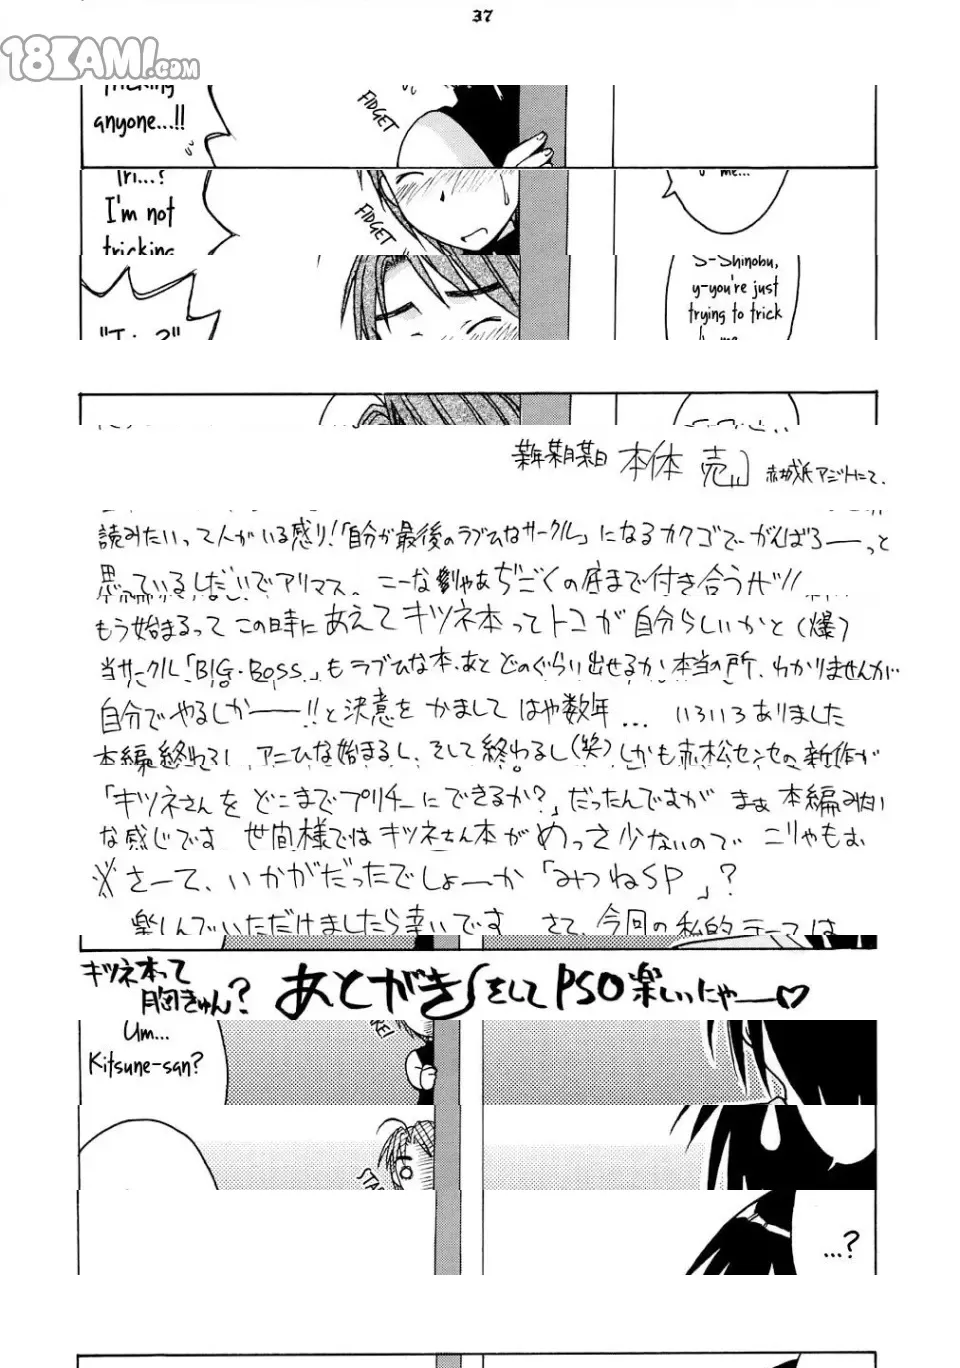 37
18KAMI.COM
anyone...!!
FIDGET
me...
I'm not
tricking
FIDGET
S-Shinobu,
y-you're just
trying to trick
本体 売
アジトにて.
読みたいって人がいる感り!「自分が最後のラブひなサークル」になるカクゴでがんばろーっと
思っているしだいでアリマス。
ぢごくの底まで付き合うぜ!!
もう始まるって この時に あえて キツネ本ってトコが 自分らしいかと (爆)
当サークル「BIG・BOSS」も ラブひな本、あと どのぐらい出せるか、本当の所、わかりませんが
自分でやるしかーーー!!と決意を かまして はや数年... いろいろありました
本編終わるし アニひな始まるし、そして終わるし(笑)しかも赤松センセの新作が
「キツネさんを どこまでプリチーにできるか?」だったんですが まぁ 本編みたい
な感じです 世間様では キツネさん本が めっさ少ないので こりゃもぉ
※さーて、いかがだったでしょーか「みつねSP」?
楽しんでいただけましたら幸いです さて、今回の私的テーマは
キツネ本って
胸きゅん?
あとがき そして PSO 楽しいにゃー♡
Um...
Kitsune-san?
...?